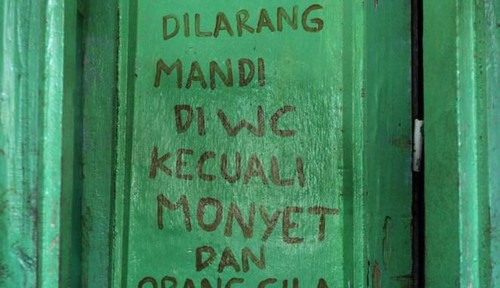 DILARANG
MANDI
DI WC
KECUALI
MONYET
DAN
ORANG GILA